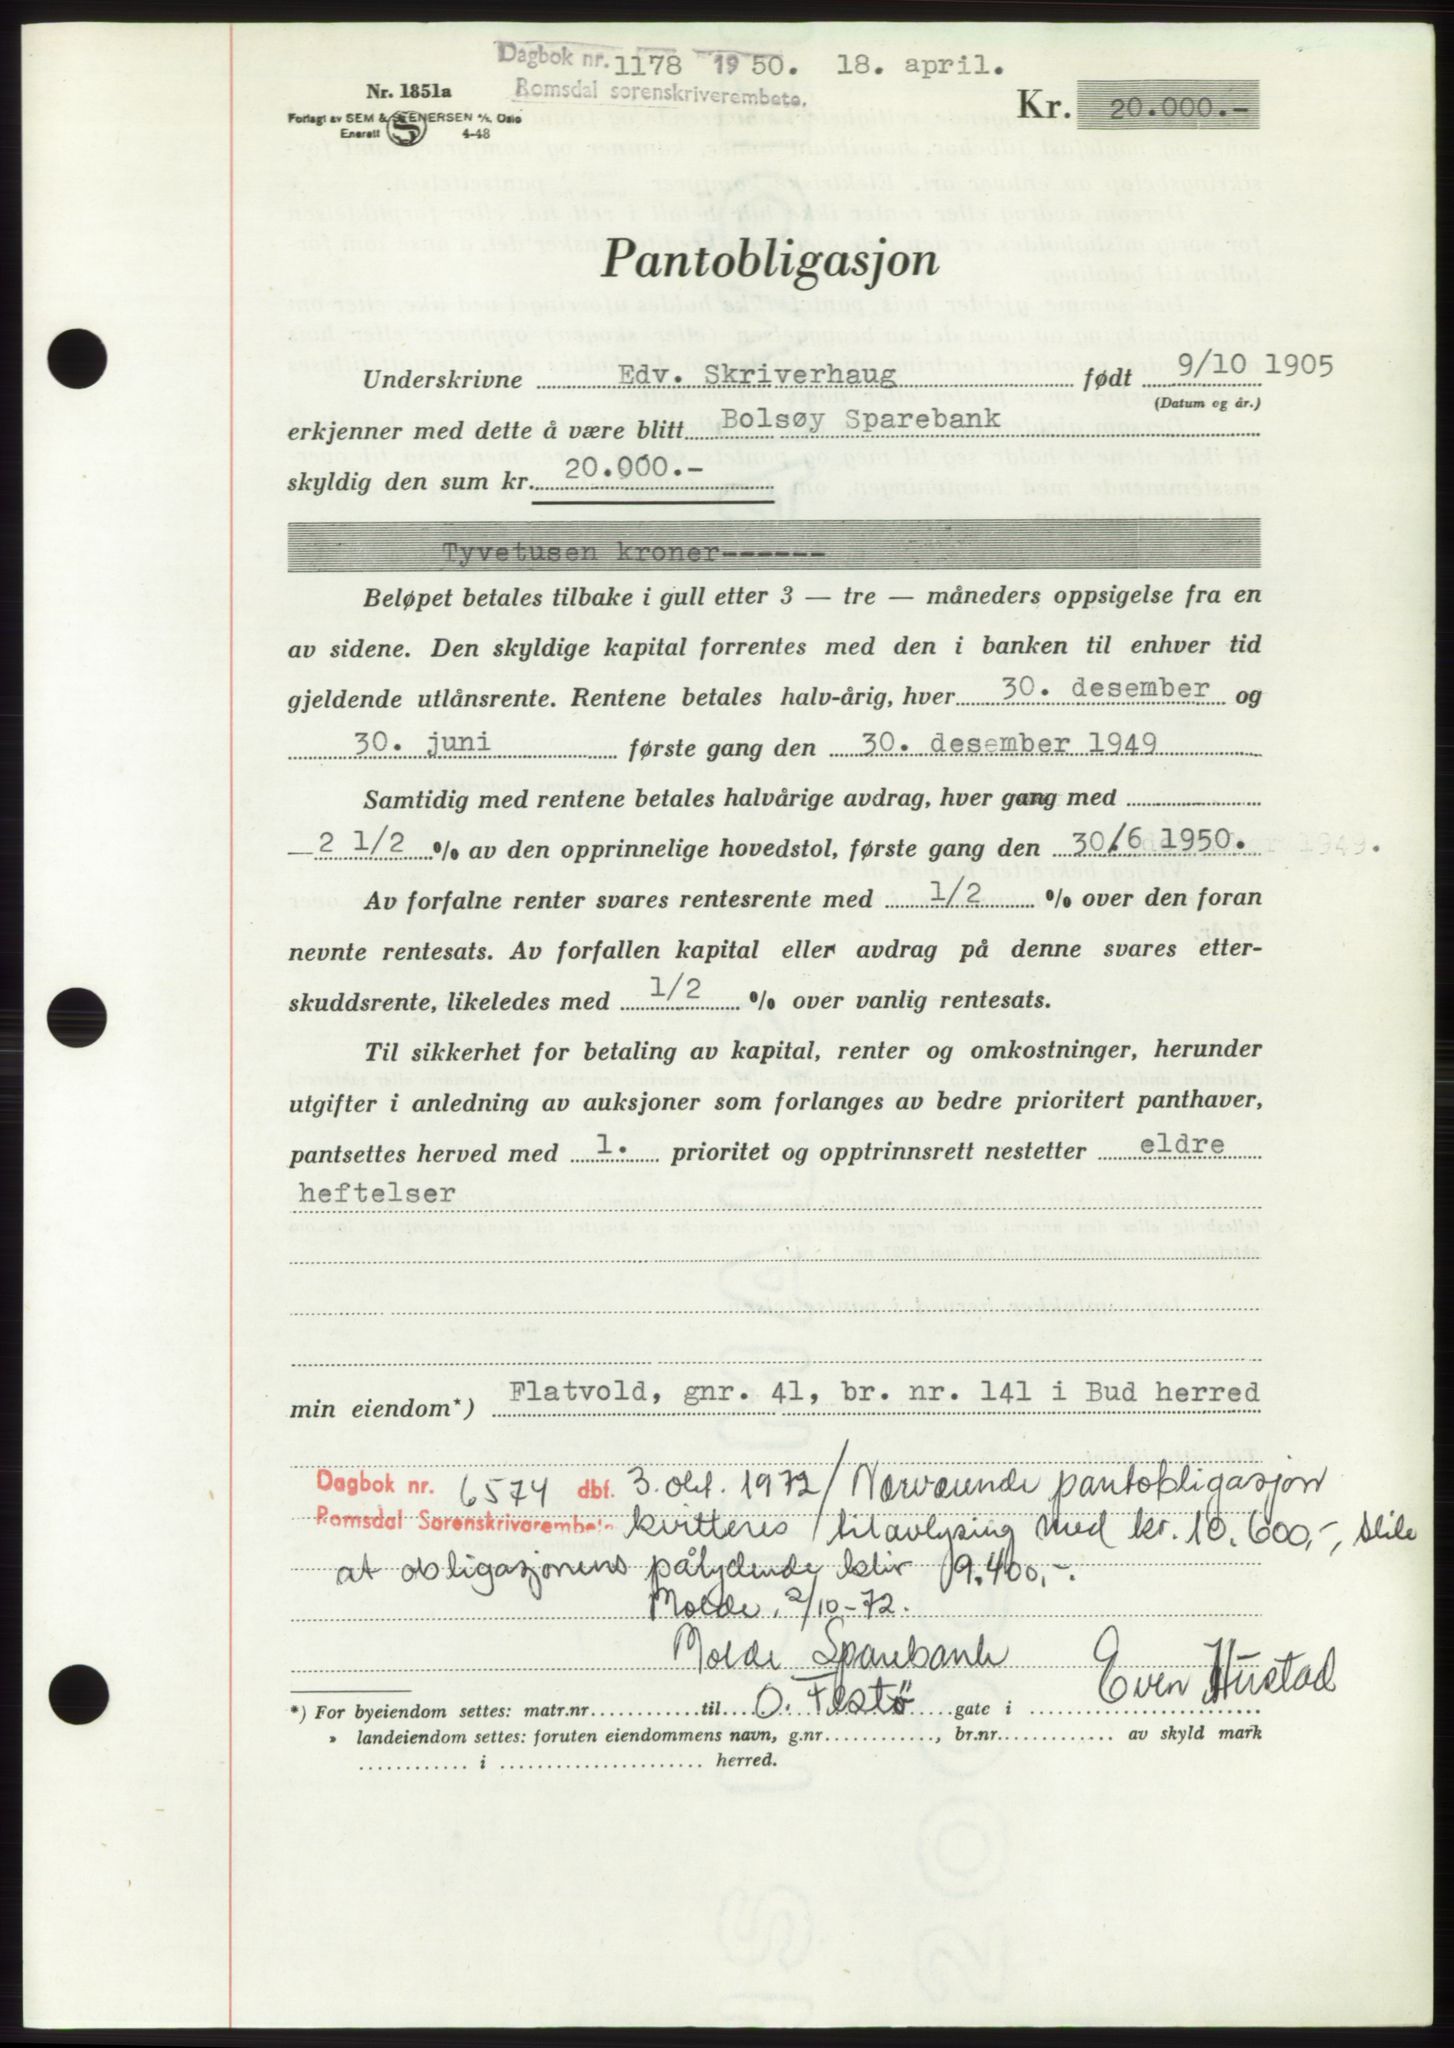 Dagbok nr. 1178 1950. 18. april.
Romsdal sorenskriverembete.
Nr. 1851a
Forlagt av SEM & STENERSEN A/S, Oslo
Enerett 4-48
Kr. 20.000.-
Pantobligasjon
Underskrivne Edv. Skriverhaug født 9/10 1905
(Datum og år.)
erkjenner med dette å være blitt Bolsøy Sparebank
skyldig den sum kr. 20.000.-
Tyvetusen kroner------
Beløpet betales tilbake i gull etter 3 — tre — måneders oppsigelse fra en
av sidene. Den skyldige kapital forrentes med den i banken til enhver tid
gjeldende utlånsrente. Rentene betales halv-årig, hver 30. desember og
30. juni første gang den 30. desember 1949
Samtidig med rentene betales halvårige avdrag, hver gang med
2 1/2 % av den opprinnelige hovedstol, første gang den 30/6 1950.
Av forfalne renter svares rentesrente med 1/2 % over den foran
nevnte rentesats. Av forfallen kapital eller avdrag på denne svares etter-
skuddsrente, likeledes med 1/2 % over vanlig rentesats.
Til sikkerhet for betaling av kapital, renter og omkostninger, herunder
utgifter i anledning av auksjoner som forlanges av bedre prioritert panthaver,
pantsettes herved med 1. prioritet og opptrinnsrett nestetter eldre
heftelser
min eiendom*) Flatvold, gnr. 41, br. nr. 141 i Bud herred
Dagbok nr. 6574 dbf. 3. okt. 1972 / Nærværende pantobligasjon
Romsdal Sorenskriverembete kvitteres til avlysing med kr. 10.600,-, slik
at obligasjonens pålydende blir 9.400,-.
Molde, 2/10-72.
Molde Sparebank
O. Festø Even Hustad
*) For byeiendom settes: matr.nr. til gate i
» landeiendom settes: foruten eiendommens navn, g.nr. , br.nr. av skyld mark
i herred.